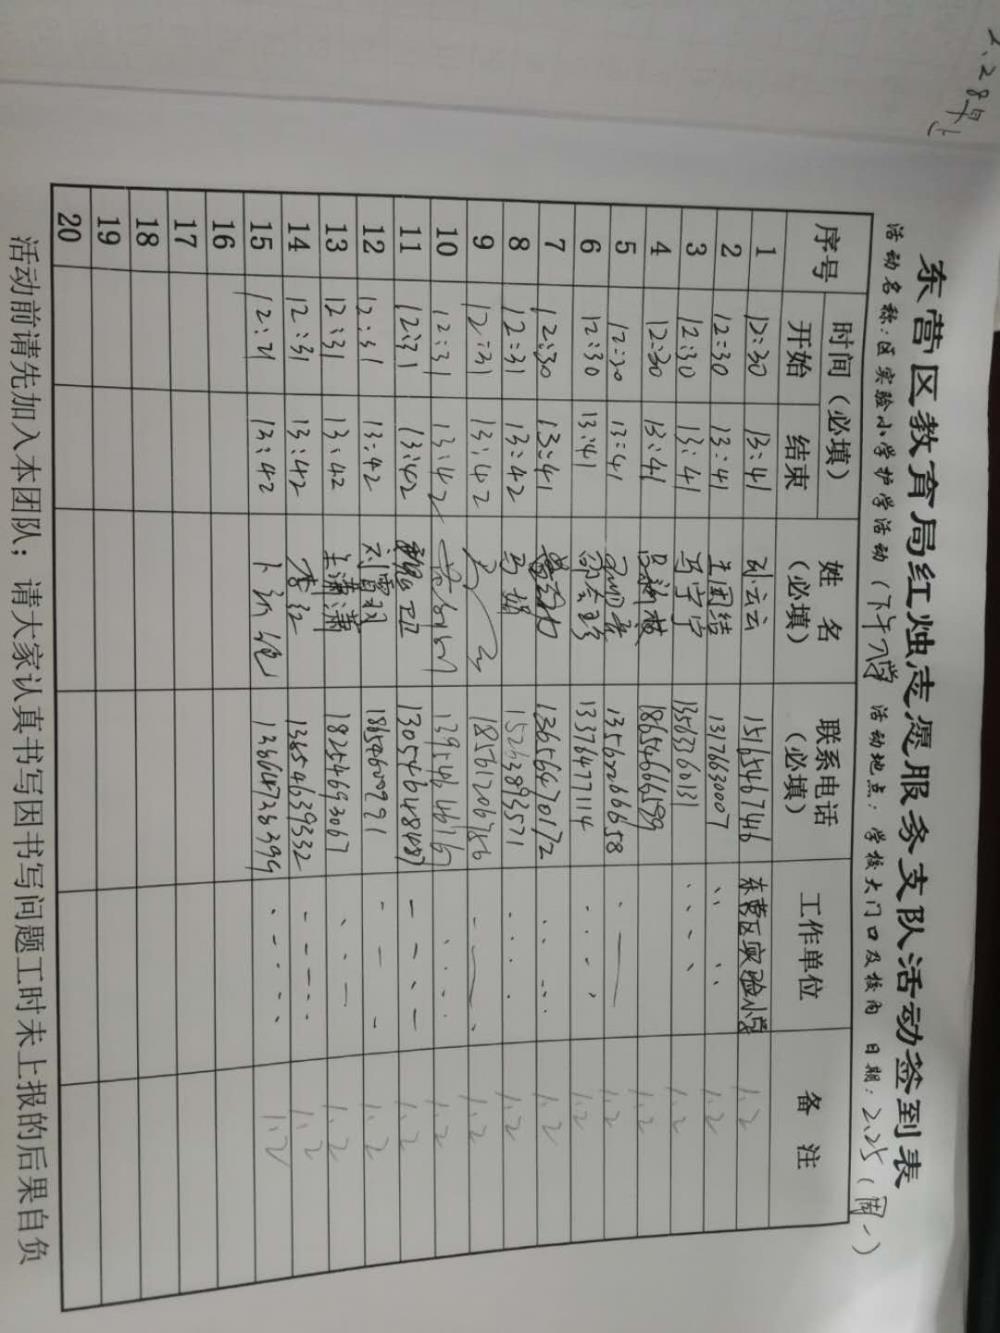 东营区教育局红烛志愿服务支队活动签到表
活动名称:区实验小学护学活动(下午入学 活动地点:学校大门口及校内 日期:2.25(周一)
序号 时间(必填) 姓名(必填) 联系电话(必填) 工作单位 备注
开始 结束
1 12:30 13:41 孙云云 15165467146 东营区实验小学 1.2
2 12:30 13:41 王国结 13176630007 1.2
3 12:30 13:41 马宁宁 13583760131 1.2
4 12:30 13:41 18654666599 1.2
5 12:30 13:41 13562066658 1.2
6 12:30 13:41 13376477114 1.2
7 12:30 13:41 13656470172 1.2
8 12:31 13:42 马娟 15263893571 1.2
9 12:31 13:42 18561206786 1.2
10 12:31 13:42 1.2
11 12:31 13:42 13054648487 1.2
12 12:31 13:42 刘雪 18654600991 1.2
13 12:31 13:42 王潇潇 18254693067 1.2
14 12:31 13:42 李红 13654639332 1.2
15 12:31 13:42 1.2
16
17
18
19
20
活动前请先加入本团队;请大家认真书写因书写问题工时未上报的后果自负